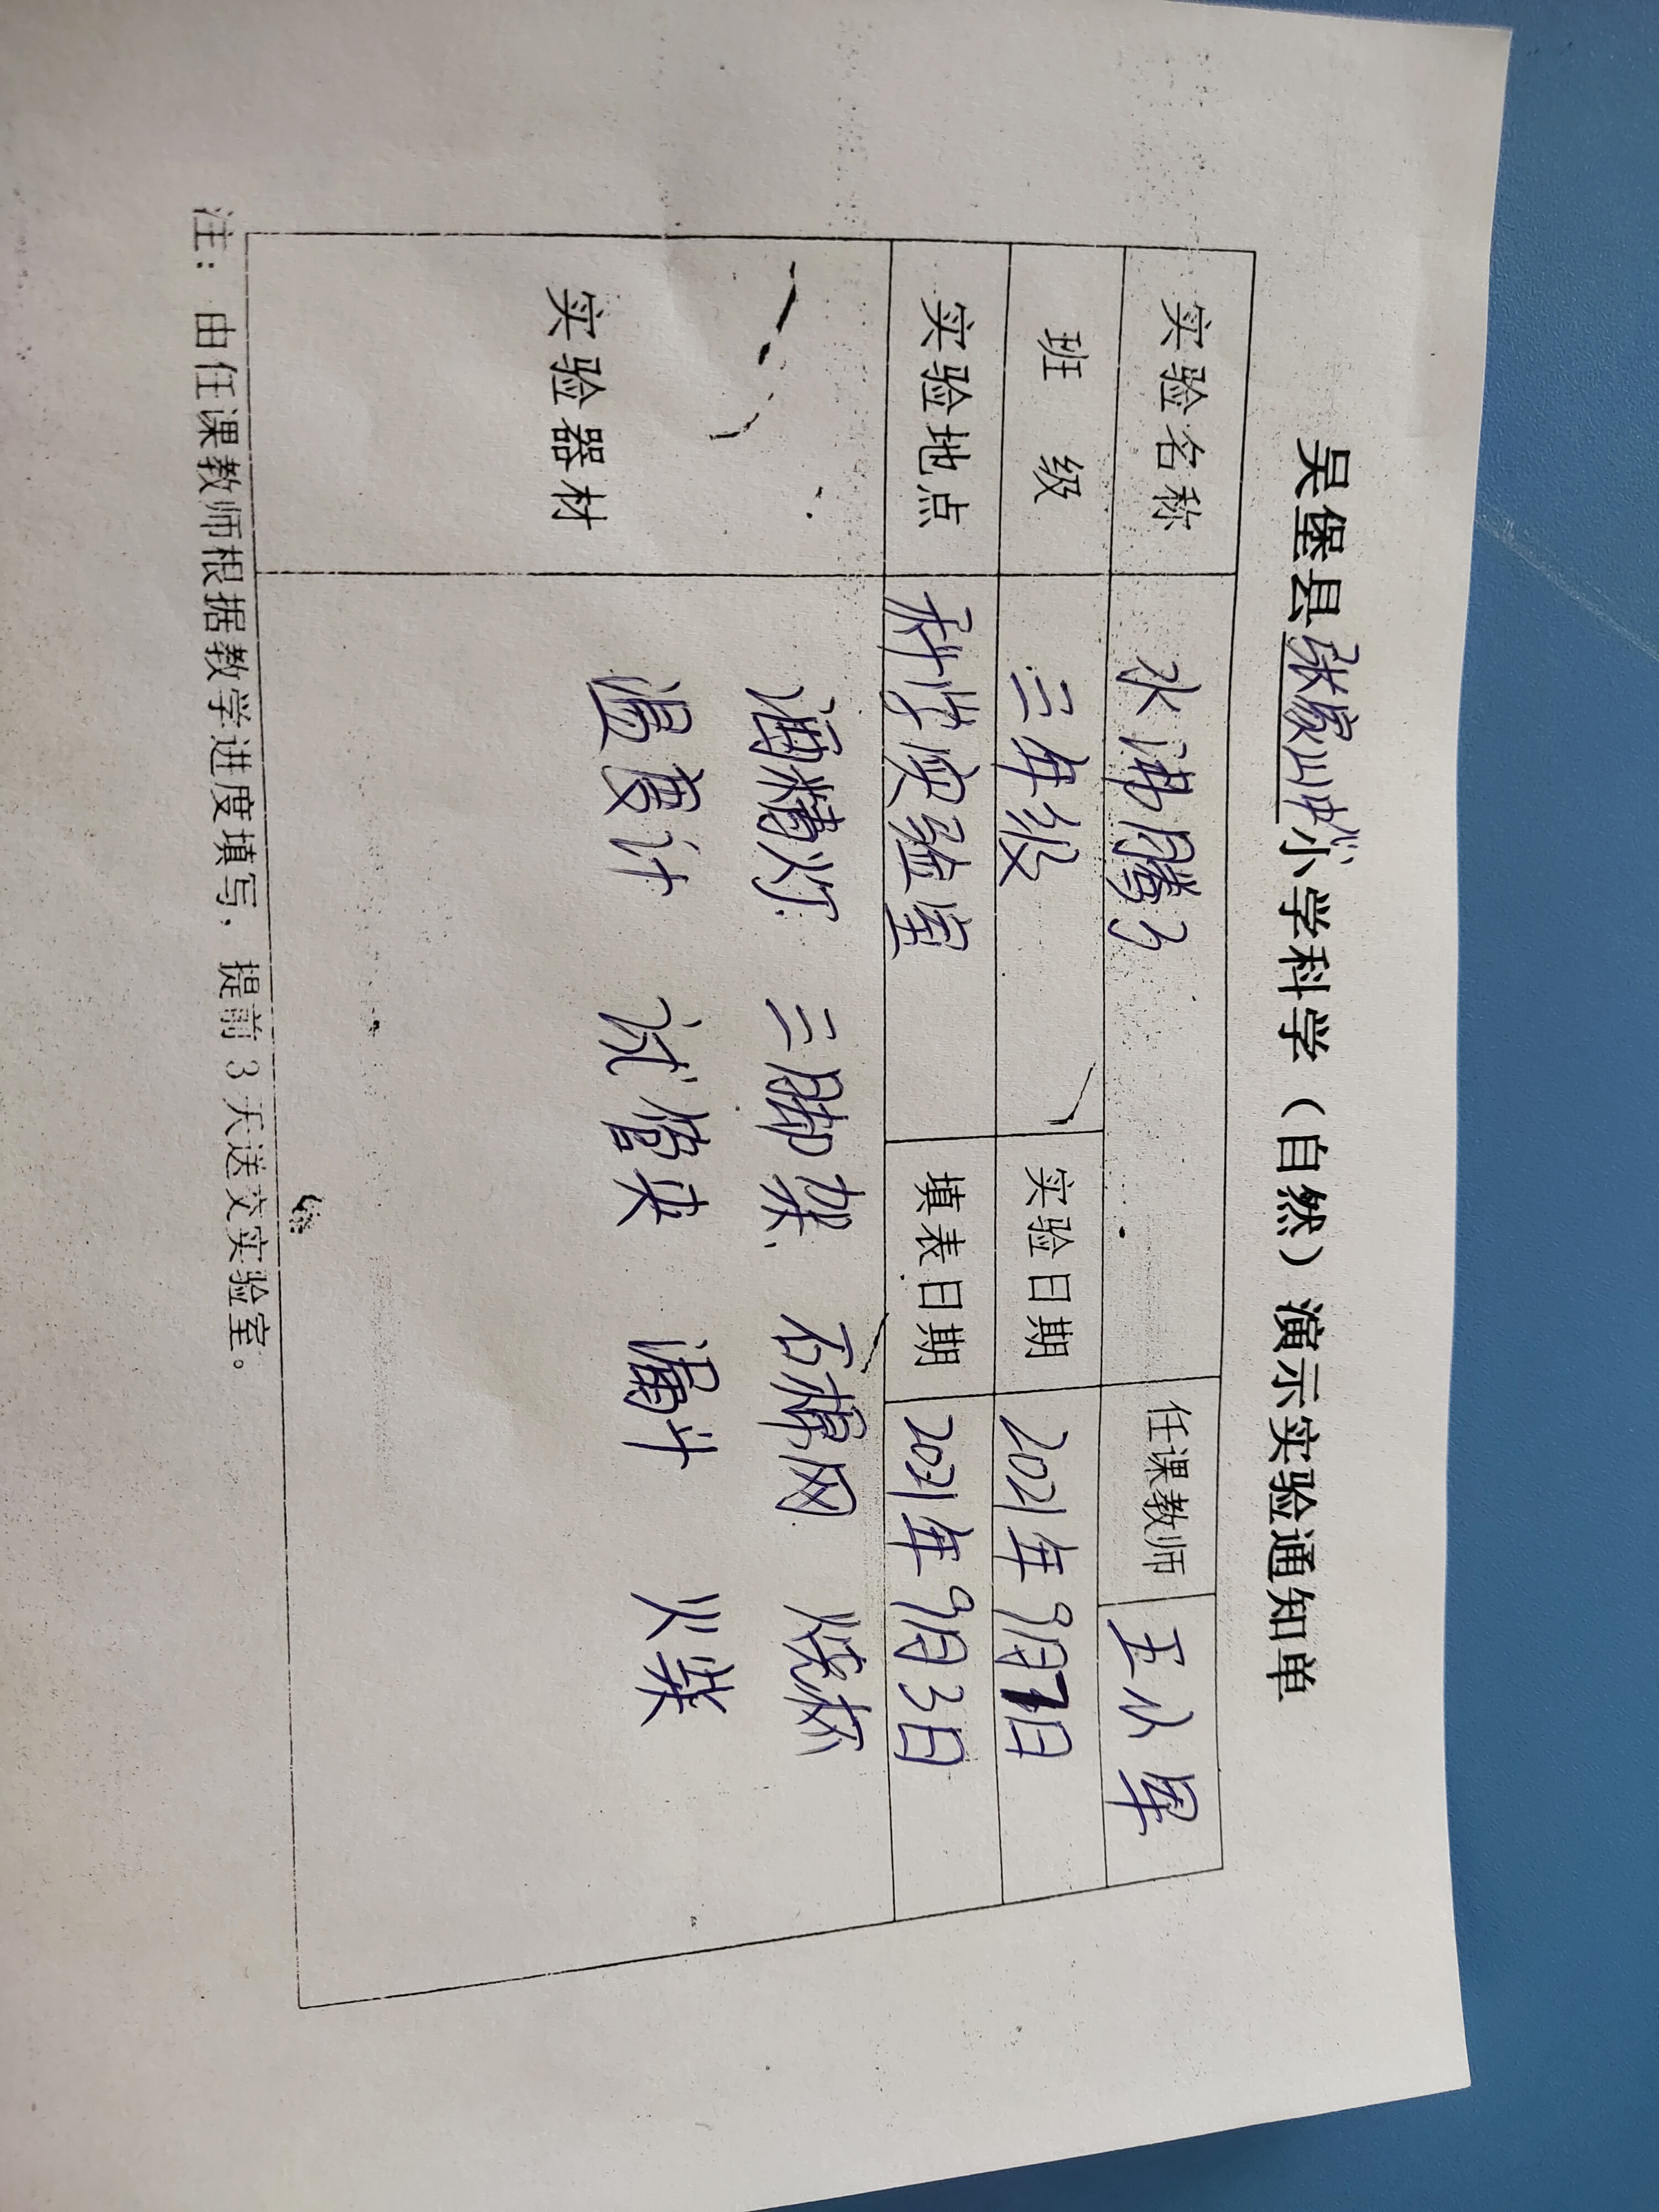 吴堡县张家山中心小学科学（自然）演示实验通知单
实验名称 水沸腾了 任课教师
班 级 三年级 实验日期 2021年9月7日
实验地点 科学实验室 填表日期 2021年9月3日
实验器材
酒精灯 三脚架 石棉网 烧杯
温度计 试管夹 漏斗 火柴
注：由任课教师根据教学进度填写，提前3天送交实验室。